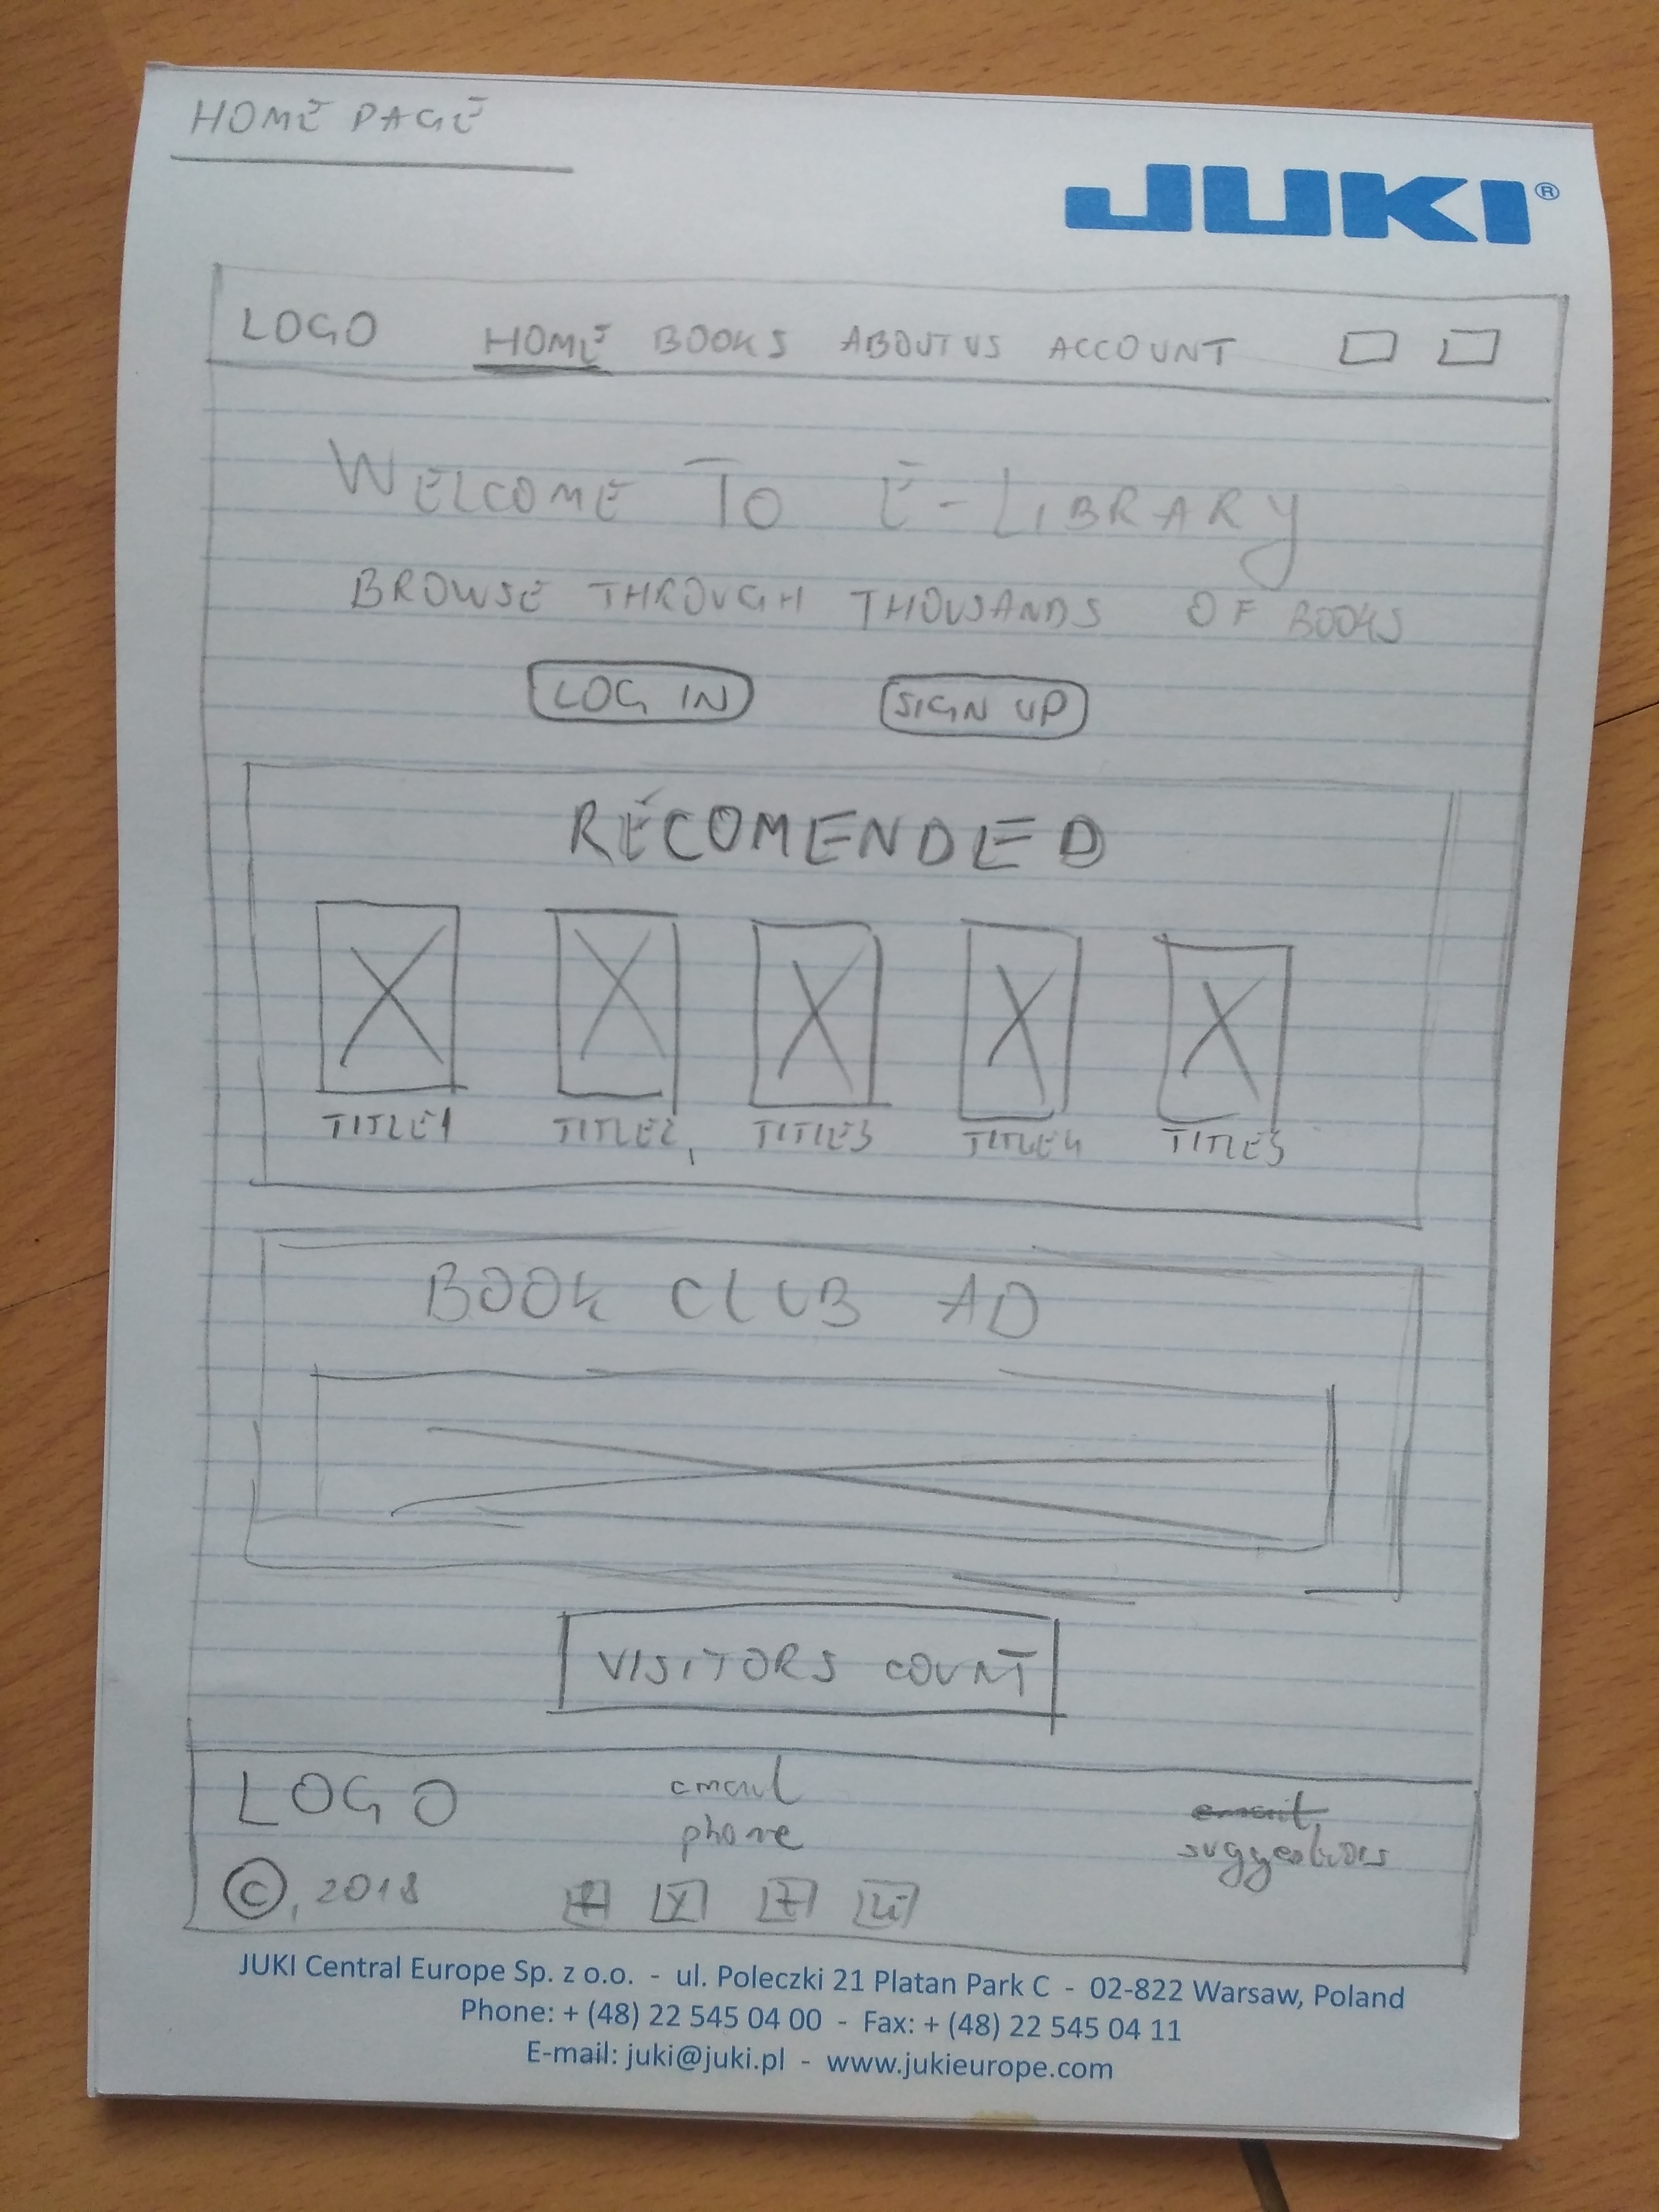 HOME PAGE
JUKI®
LOGO HOME BOOKS ABOUT US ACCOUNT
WELCOME TO E-LIBRARY
BROWSE THROUGH THOUSANDS OF BOOKS
LOG IN SIGN UP
RECOMENDED
TITLE1 TITLE2 TITLE3 TITLE4 TITLE5
BOOK CLUB AD
VISITORS COUNT
LOGO email
phone suggestions
©, 2018
JUKI Central Europe Sp. z o.o. - ul. Poleczki 21 Platan Park C - 02-822 Warsaw, Poland
Phone: + (48) 22 545 04 00 - Fax: + (48) 22 545 04 11
E-mail: juki@juki.pl - www.jukieurope.com